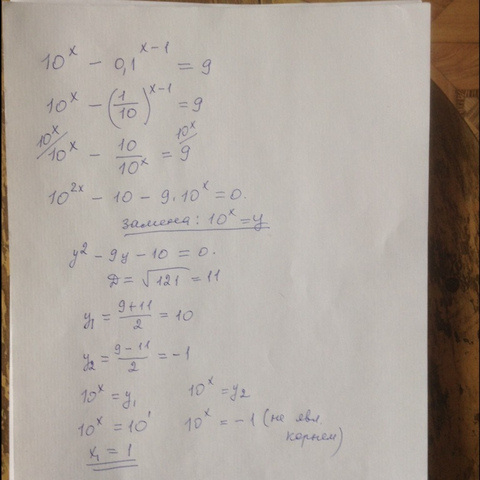 10^x − 0,1^{x−1} = 9
10^x − (1/10)^{x−1} = 9
10^x/ 10^x − 10/10^x = 9 10^x/
10^{2x} − 10 − 9·10^x = 0.
замена: 10^x = y
y² − 9y − 10 = 0.
D = √121 = 11
y₁ = (9+11)/2 = 10
y₂ = (9−11)/2 = −1
10^x = y₁ 10^x = y₂
10^x = 10^1 10^x = −1 (не явл.
корнем)
x₁ = 1